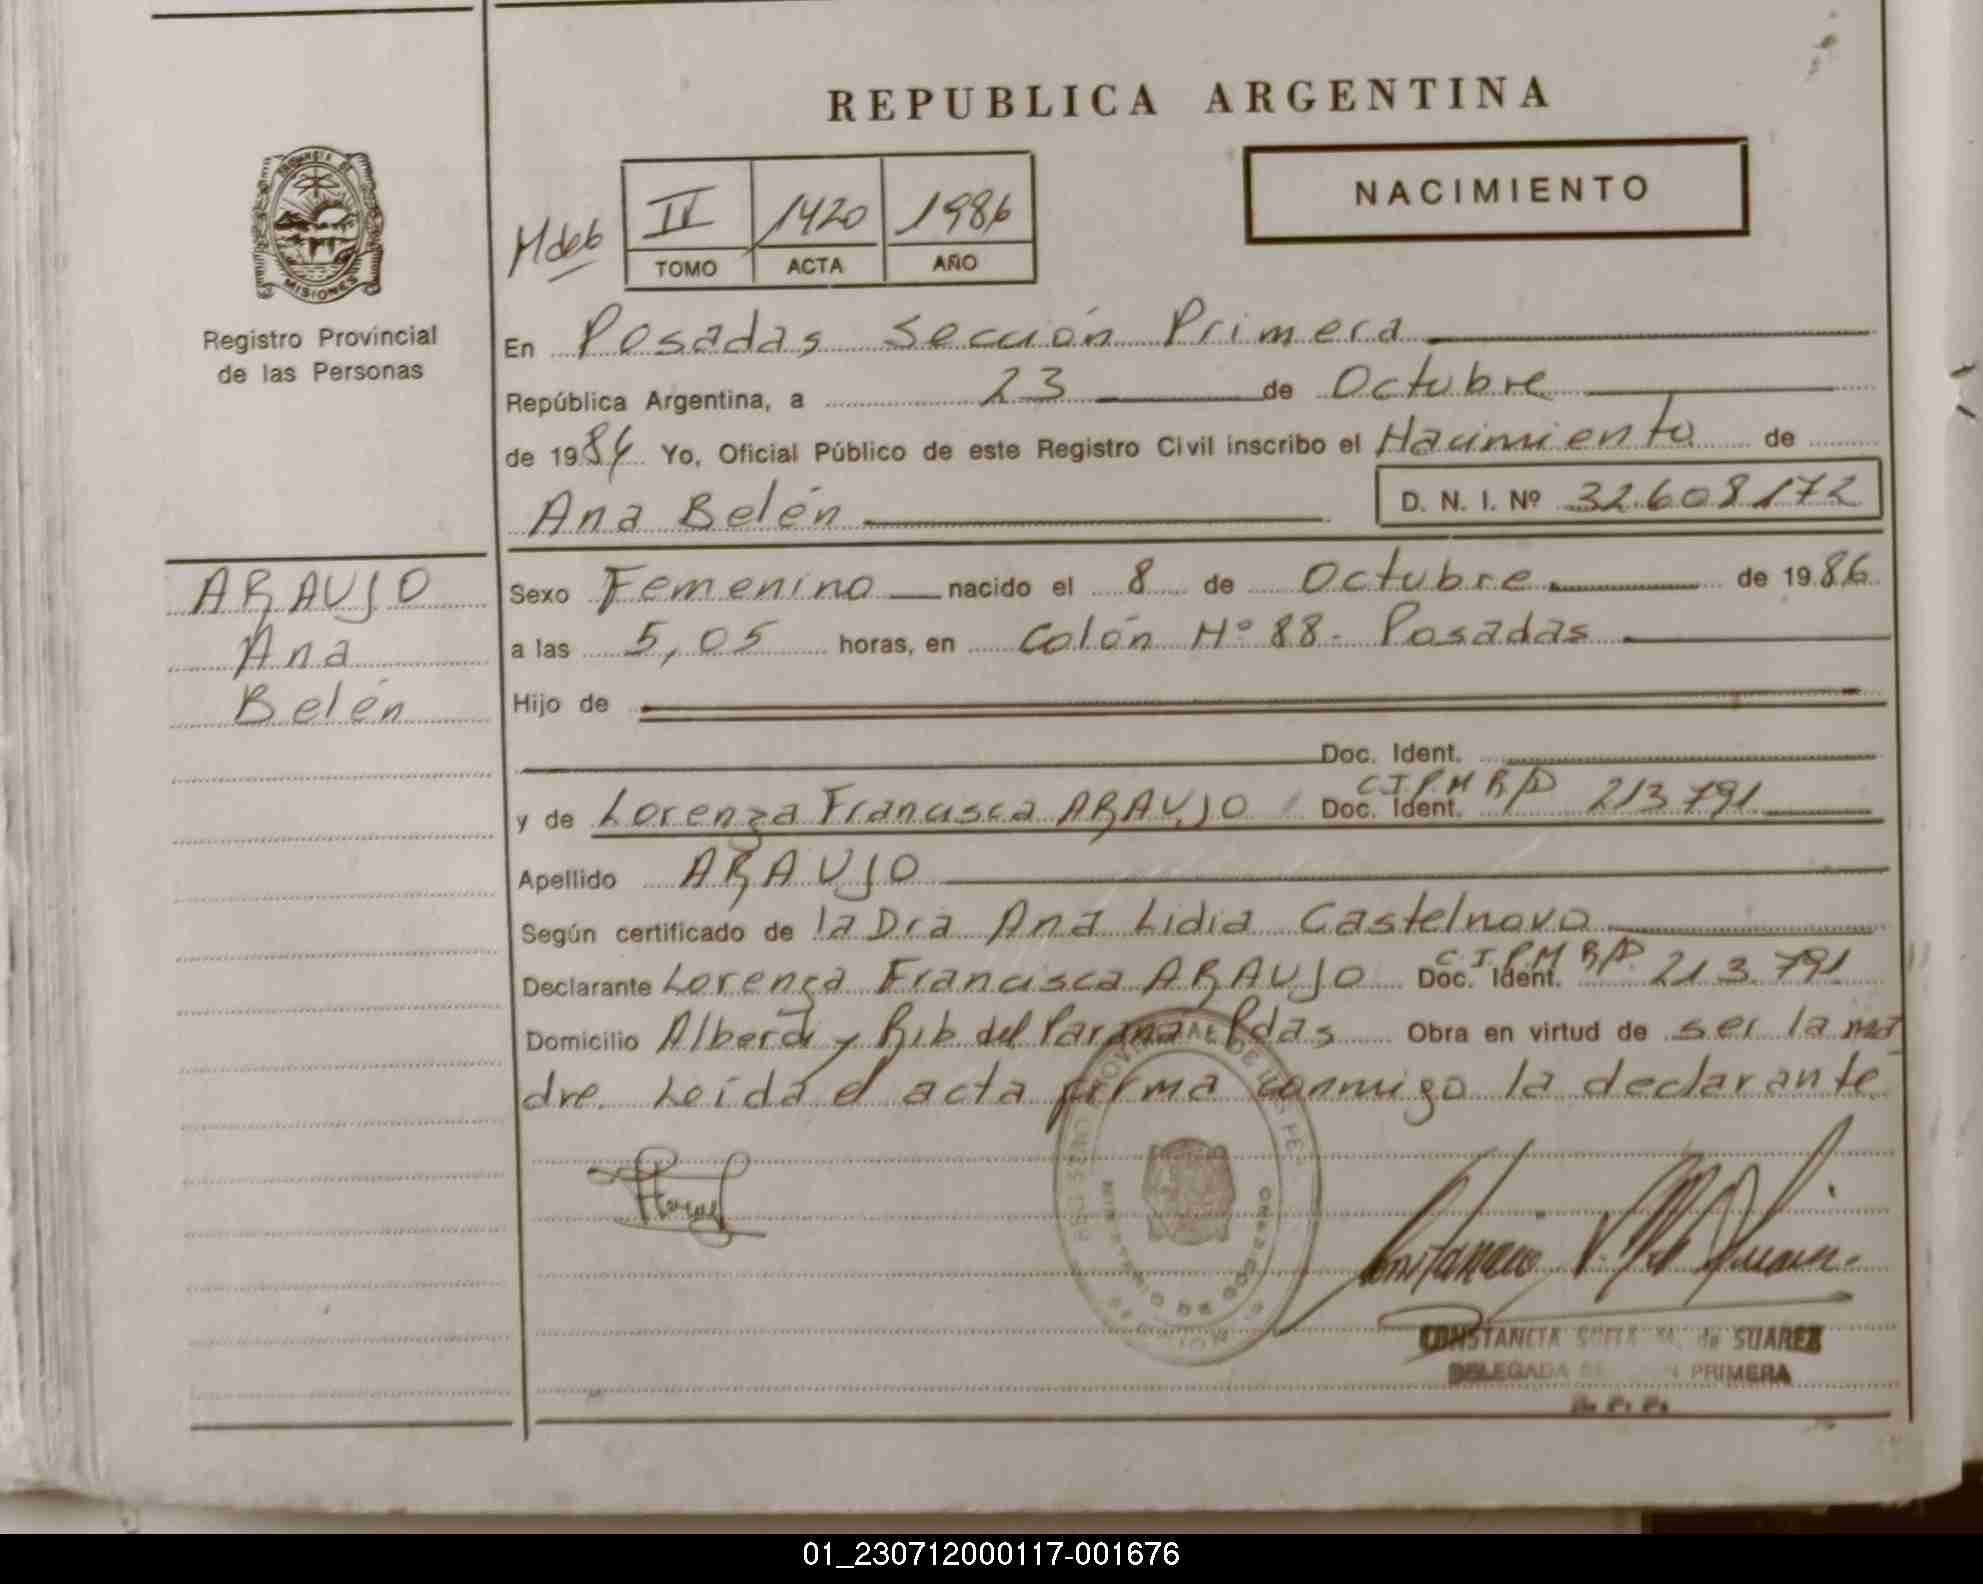 REPUBLICA ARGENTINA
NACIMIENTO
PROVINCIA DE
MISIONES
Registro Provincial
de las Personas
II 1420 1986
TOMO ACTA AÑO
En Posadas Sección Primera
República Argentina, a 23 de Octubre
de 1986 Yo, Oficial Público de este Registro Civil inscribo el Nacimiento de
Ana Belén D. N. I. Nº 32.608.172
ARAUJO
Ana
Belén
Sexo Femenino nacido el 8 de Octubre de 1986
a las 5,05 horas, en Colón Nº 88 - Posadas
Hijo de
Doc. Ident.
y de Lorenza Francisca ARAUJO Doc. Ident. C.I.P.M R/D 213.791
Apellido ARAUJO
Según certificado de la Dra Ana Lidia Castelnovo
Declarante Lorenza Francisca ARAUJO Doc. Ident. C.I.P.M R/D 213.791
Domicilio Alberdi y Rib. del Paraná Pdas Obra en virtud de ser la ma
dre. Leída el acta firma conmigo la declarante
CONSTANCIA SOFIA de SUAREZ
DELEGADA SECCION PRIMERA
01_230712000117-001676